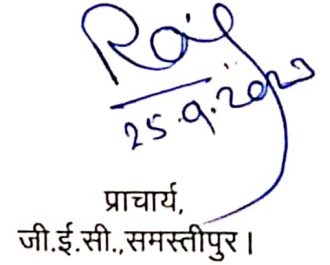 25.9.2020
प्राचार्य,
जी.ई.सी.,समस्तीपुर।